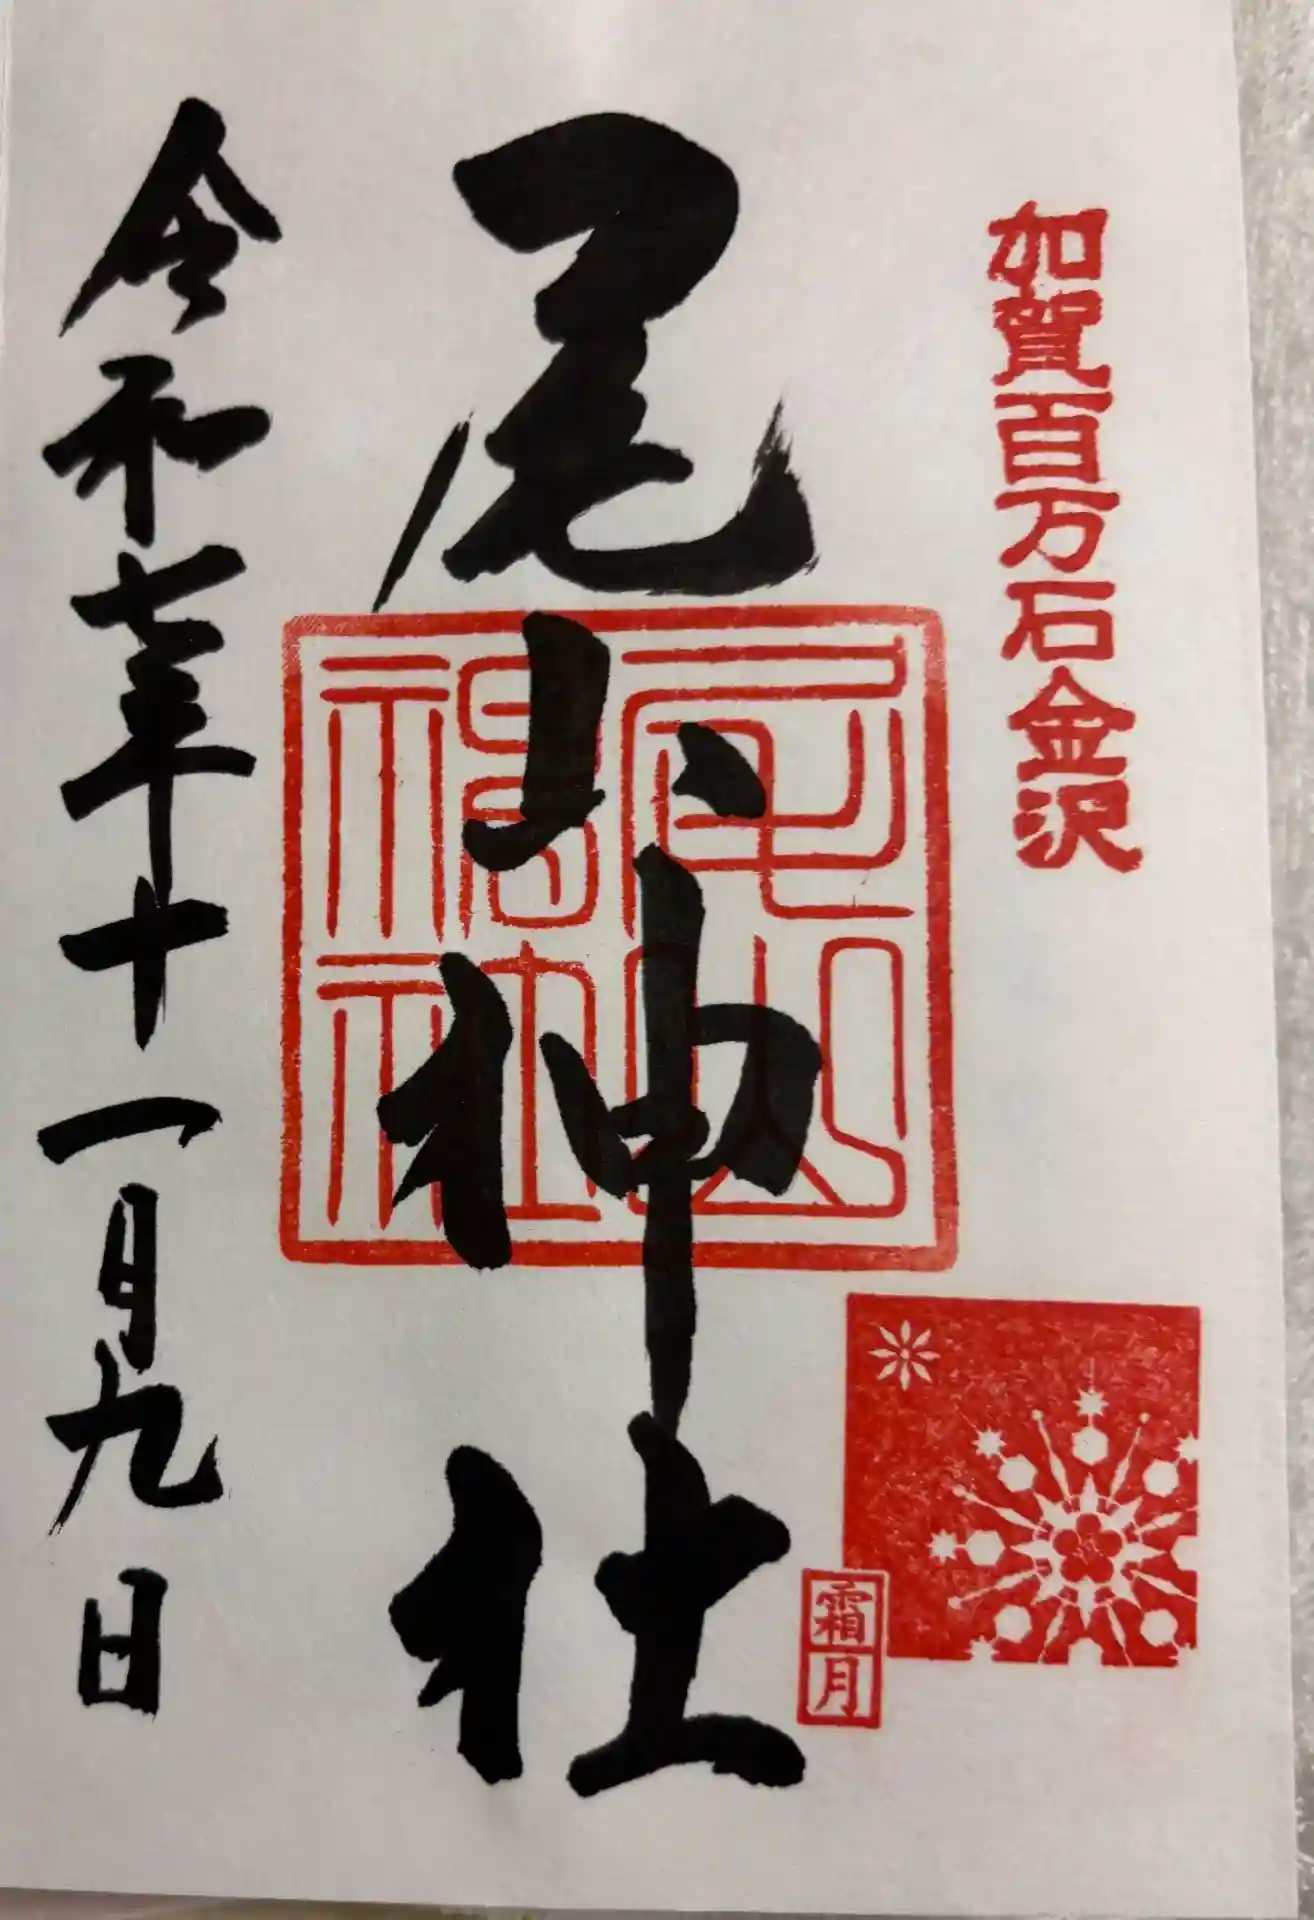 加賀百万石金沢
霜月
尾山神社
尾山
神社
令和七年十一月九日